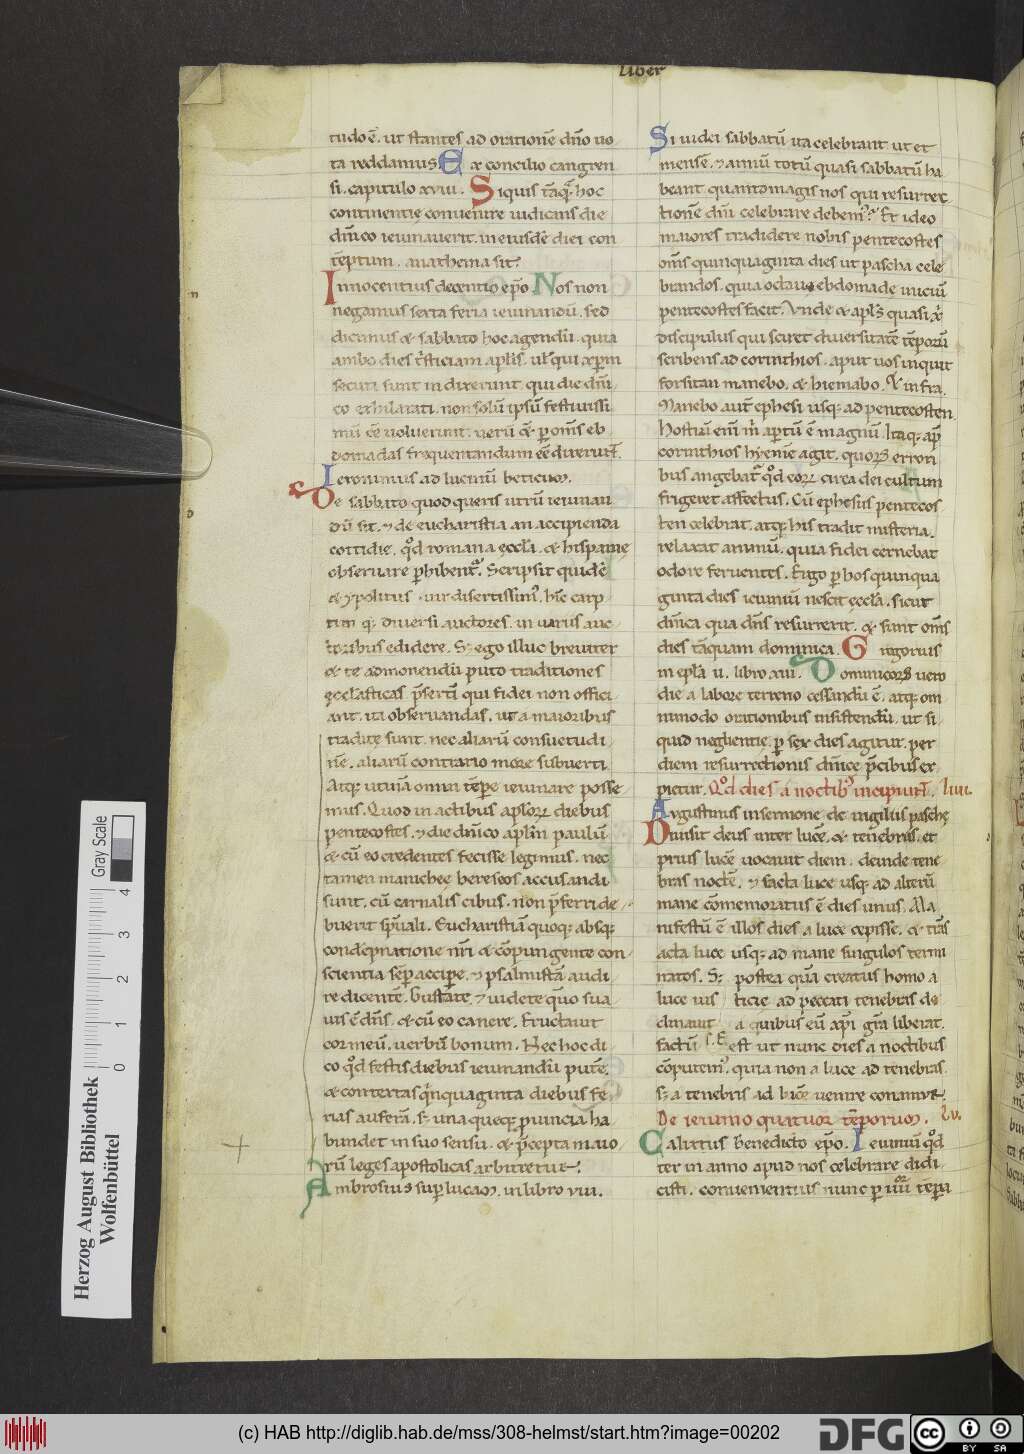 Liber
tudo ē. ut stantes ad orationē dn̄o uo
ta reddamus. Ex concilio cangren
si. capitulo xviii. Siquis tāq̄ hoc
continentię conuenire iudicans die
dn̄ico ieiunauerit. in eiusdē diei con
tēptum. anathema sit.
Innocentius decentio ep̄o. Nos non
negamus sexta feria ieiunandū. sed
dicimus & sabbato hoc agendū. quia
ambo dies t̄sticiam ap̄lis. ul̄ qui xp̄m
secuti sunt indixerunt. qui die dn̄i
co exhilarati. non solū ipsū festiuissi
mū eē uoluerunt. uerū & p om̄s eb
domadas frequentandum eē dixerunt.
Ieronimus ad lucinū beticum.
De sabbato quod queris utrū ieiunan
dū sit. & de eucharistia an accipienda
cottidie. qd romana ęccl̄a. & hispanię
obseruare phibent. Scripsit quidē
& ypolitus uir disertissim'. hinc carp
tim q; diuersi auctores. in uariis auc
toribus edidere. S; ego illuc breuiter
& te admonendū puto traditiones
ęccl̄asticas p̄sertī qui fidei non offici
ant. ita obseruandas. ut a maioribus
traditę sunt. nec aliarū consuetudi
nē. aliarū contrario more subuerti.
Atq; utinā omni tēpe ieiunare posse
mus. Quod in actibus aplorꝝ diebus
pentecostes. & die dn̄ico aplm̄ paulū
& cū eo credentes fecisse legimus. nec
tamen manichee hereseos accusandi
sunt. cū carnalis cibus. non p̄ferri de
buerit sp̄uali. Eucharistiā quoq; absq;
condēpnatione nr̄i & cōpungente con
scientia sēp accipe. & psalmistā audi
re dicentē. Gustate. & uidete qm̄ sua
uis ē dn̄s. & cū eo canere. Eructauit
cor meū. uerbū bonum. Nec hoc di
co qd festis diebus ieiunandū putē.
& contextas q̄nquaginta diebus fe
rias auferā. s; una queq; puincia ha
bundet in suo sensu. & p̄cepta maio
rū leges apostolicas arbitretur.
Ambrosius sup lucam. in libro viii.
Si iudei sabbatū ita celebrant ut et
mensē. & annū totū quasi sabbatū ha
beant. quantomagis nos qui resurrec
tionē dn̄i celebrare debem'. Et ideo
maiores tradidere nobis pentecostes
om̄s quinquaginta dies ut pascha cele
brandos. quia octauę ebdomade iniciū
pentecostes facit. Vnde & apl's quasi xp̄i
discipulus qui sciret diuersitatē tēporū
scribens ad corinthios. aput uos inquit
forsitan manebo. & hiemabo. & infra.
Manebo aut ephesi usq; ad pentecosten.
Hostiū enī m̄ aptū ē magnū. Itaq; ap̄
corinthios hyemē agit. quorꝝ errori
bus angebat qd eorꝝ circa dei cultum
frigeret affectus. Cū ephesiis pentecos
ten celebrat. atq; his tradit misteria.
relaxat animū. quia fidei cernebat
odore feruentes. Ergo p hos quinqua
ginta dies ieiuniū nescit ęccl̄a. sicut
dn̄ica qua dn̄s resurrexit. & sunt om̄s
dies tāquam dominica. Gregorius
in epl̄a u. libro xiii. Dominicorꝝ uero
die a labore terreno cessandū ē. atq; om
nimodo orationibus insistendū. ut si
quid neglientię p sex dies agitur. per
diem resurrectionis dn̄icę p̄cibus ex
pietur. Qd dies a noctib' incipiunt. liiii.
Augustinus in sermone de uigiliis paschę
Diuisit deus inter lucē. & tenebras. et
prius lucē uocauit diem. deinde tene
bras noctē. & facta luce usq; ad alterū
mane cōmemoratus ē dies unus. Ma
nifestū ē illos dies a luce cepisse. & trās
acta luce usq; ad mane singulos termi
natos. S; postea quā creatus homo a
luce ius ticię ad peccati tenebras de
clinauit a quibus eū xp̄i gr̄a liberat.
factū est ut nunc dies a noctibus
cōputem'. quia non a luce ad tenebras.
s; a tenebris ad lucē uenire conamur.
De ieiunio quatuor tēporum. lv.
Calixtus Benedicto ep̄o. Ieiuniū qd
ter in anno apud nos celebrare didi
cisti. conuenientius nunc p iiii tēpora
Herzog August Bibliothek
Wolfenbüttel
Gray Scale
0 1 2 3 4
(c) HAB http://diglib.hab.de/mss/308-helmst/start.htm?image=00202
DFG
cc
BY SA